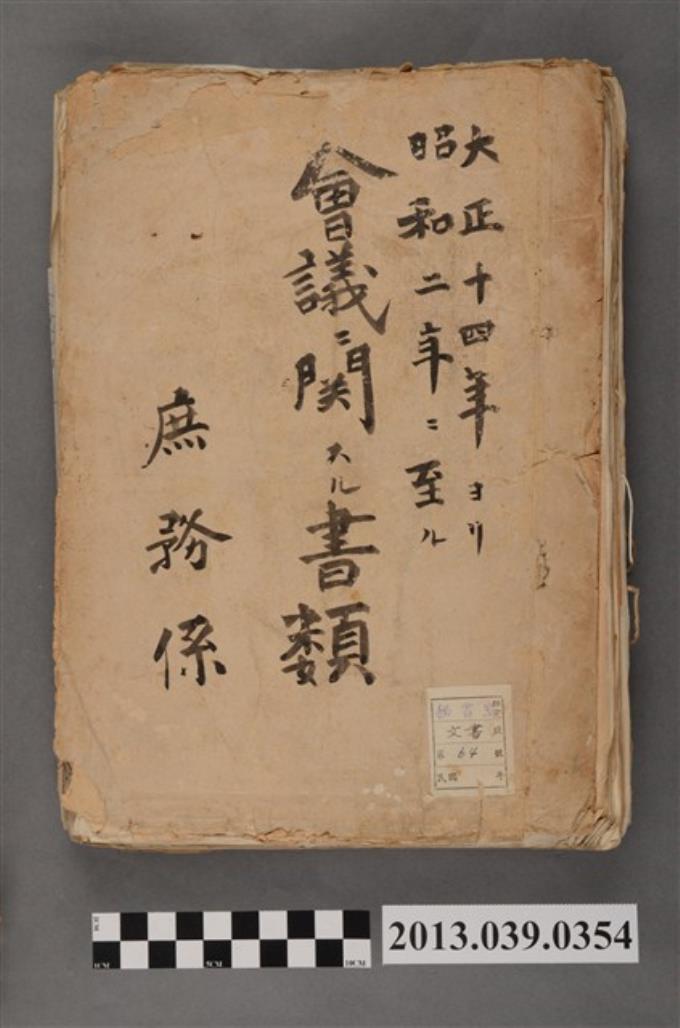 大正十四年ヨリ
昭和二年ニ至ル
會議ニ関スル書類
庶務係
文書
第 64 號
民國 年
2013.039.0354
1CM 5CM 10CM